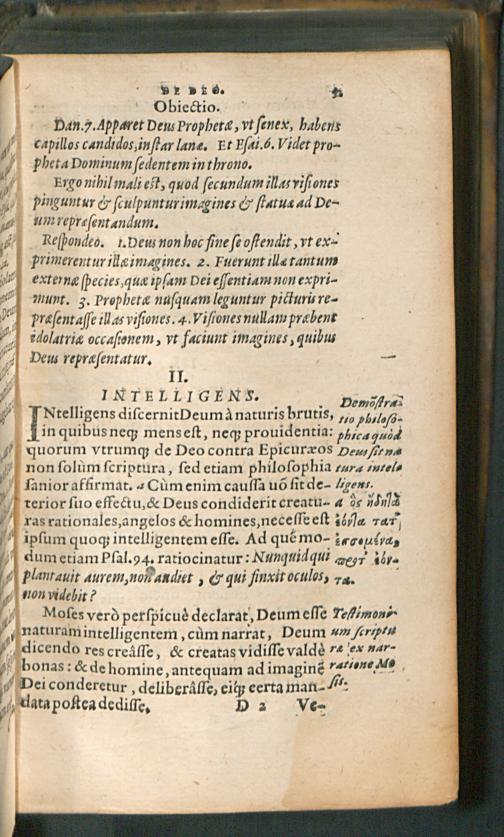 DE DEO.
Obiectio.
Dan.7. Apparet Deus Prophetæ, vt senex, habens
capillos candidos, instar lanæ. Et Esai.6. Videt pro-
pheta Dominum sedentem in throno.
Ergo nihil mali est, quod secundum illas visiones
pinguntur & sculpuntur imagines & statuæ ad De-
um repræsentandum.
Respondeo. 1. Deus non hoc fine se ostendit, vt ex-
primerentur illæ imagines. 2. Fuerunt illæ tantum
externæ species, quæ ipsam Dei essentiam non expri-
munt. 3. Prophetæ nusquam leguntur picturis re-
præsentasse illas visiones. 4. Visiones nullam præbent
idolatriæ occasionem, vt faciunt imagines, quibus
Deus repræsentatur.
II.
INTELLIGENS.
INtelligens discernit Deum à naturis brutis,
in quibus neq; mens est, neq; prouidentia:
quorum vtrumq; de Deo contra Epicuræos
non solùm scriptura, sed etiam philosophia
sanior affirmat. a Cùm enim caussa nõ sit de-
terior suo effectu, & Deus condiderit creatu-
ras rationales, angelos & homines, necesse est
ipsum quoq; intelligentem esse. Ad quẽ mo-
dum etiam Psal.94. ratiocinatur: Nunquid qui
plantauit aurem, non audiet, & qui finxit oculos,
non videbit?
Moses verò perspicuè declarat, Deum esse
naturam intelligentem, cùm narrat, Deum
dicendo res creâsse, & creatas vidisse valdè
bonas: & de homine, antequam ad imaginẽ
Dei conderetur, deliberâsse, eiq; certa man-
data postea dedisse.
D 2 Ve-
Demõstra-
tio philoso-
phica quòd
Deus sit na
tura intel-
ligens.
a ὃς ᾔδη τὰ
ἐσσόμενα,
Testimoni-
um scriptu
ræ ex nar-
ratione Mo
sis.